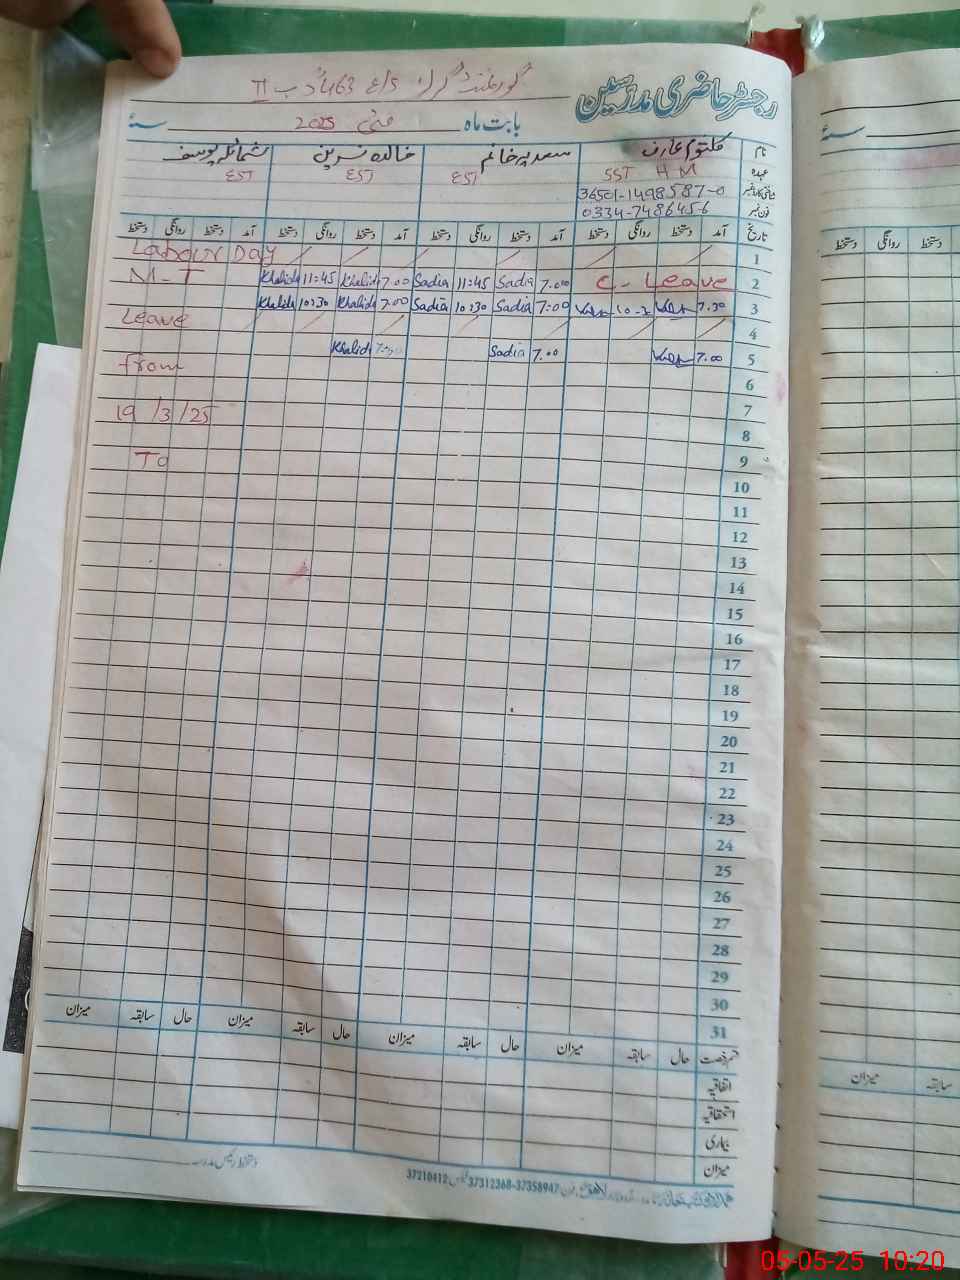 رجسٹر حاضری مدرسین
گورنمنٹ گرلز 463 گ ب II
بابت ماہ مئی 2025 سنہ
نام کلثوم عارف سعدیہ خانم خالدہ نسرین شمائلہ یوسف
عہدہ SST HM EST EST EST
شناختی کارڈ نمبر 36501-1498587-0
فون نمبر 0334-7486456
تاریخ آمد دستخط روانگی دستخط آمد دستخط روانگی دستخط آمد دستخط روانگی دستخط آمد دستخط روانگی دستخط
1 Labour Day
2 C - Leave 7.00 Sadia 11:45 Sadia 7.00 Khalida 11:45 Khalida M-T
3 7.30 7:00 Sadia 10:30 Sadia 7.00 Khalida 10:30 Khalida
Leave
4
5 7.00 7.00 Sadia Khalida
from
6
7 19/3/25
8
9 To
10
11
12
13
14
15
16
17
18
19
20
21
22
23
24
25
26
27
28
29
30
31
حال سابقہ میزان حال سابقہ میزان حال سابقہ میزان حال سابقہ میزان
اتفاقیہ
استحقاقیہ
بیماری
میزان
دستخط رئیس مدرسہ
37312368-37358947 37210412
سنہ
دستخط روانگی دستخط
سابقہ میزان
05-05-25 10:20